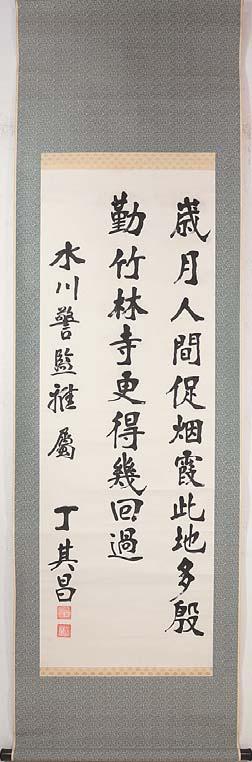 歲月人間促烟霞此地多殷
勤竹林寺更得幾回過
水川警監雅屬 丁其昌